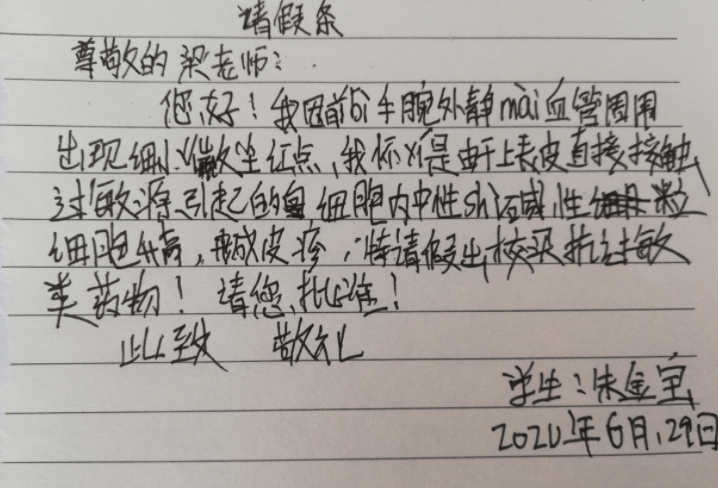 请假条
尊敬的梁老师：
您好！我因前bì手腕外静mài血管周围
出现细小散尘红点，我怀yí是由于上表皮直接接触
过敏源引起的细胞内中性shì碱性粒
细胞升高，形成皮疹，特请假出校买抗过敏
类药物！请您批准！
此致 敬礼
学生：朱金宝
2020年6月29日